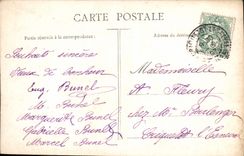 CARTE POSTALE
Partie réservée à la correspondance.
Adresse du destinataire.
Souhaits sincères
Vœux de bonheur
Eug. Bunel
M. Bunel
Marguerite Bunel
Gabrielle Bunel
Marcel Bunel
Mademoiselle
A. Fleury
chez Mr Boulenger
Criquetot l'Esneval